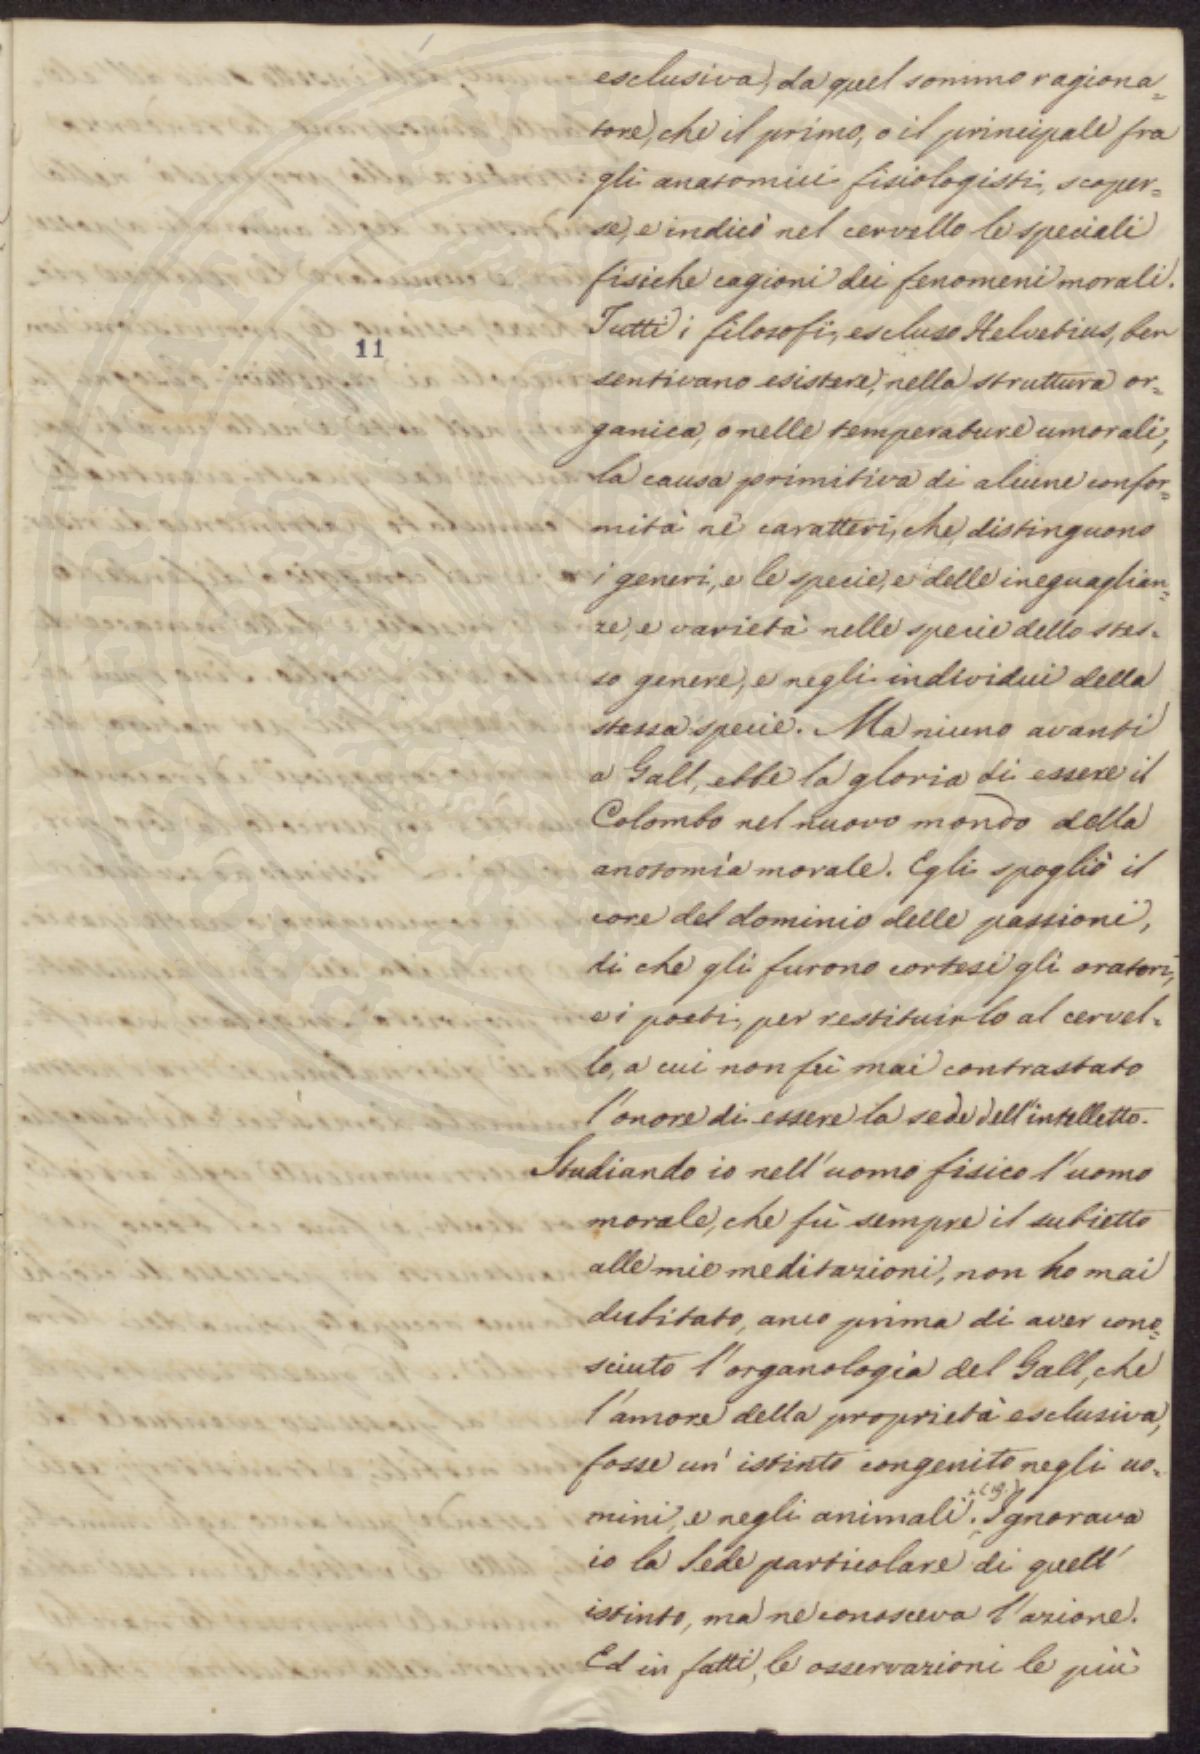 esclusiva, da quel sommo ragiona=
tore, che il primo, o il principale fra
gli anatomici fisiologisti, scoper=
se, e indicò nel cervello le speciali
fisiche cagioni dei fenomeni morali.
Tutti i filosofi, escluso Helvetius, ben
11
sentivano esistere, nella struttura or=
ganica, o nelle temperature umorali,
la causa primitiva di alcune confor=
mità ne' caratteri, che distinguono
i generi, e le specie, e delle ineguaglian=
ze, e varietà nelle specie dello stes=
so genere, e negli individui della
stessa specie. Ma niuno avanti
a Gall, ebbe la gloria di essere il
Colombo nel nuovo mondo della
anotomia morale. Egli spogliò il
core del dominio delle passioni,
di che gli furono cortesi gli oratori,
e i poeti, per restituirlo al cervel=
lo, a cui non fù mai contrastato
l'onore di essere la sede dell'intelletto.
Studiando io nell'uomo fisico l'uomo
morale, che fù sempre il subietto
alle mie meditazioni, non ho mai
dubitato, anco prima di aver cono=
sciuto l'organologia del Gall, che
l'amore della proprietà esclusiva,
fosse un'istinto congenito negli uo=
mini, e negli animali. Ignorava
io la Sede particolare di quell'
istinto, ma ne conosceva l'azione.
Ed in fatti, le osservazioni le più